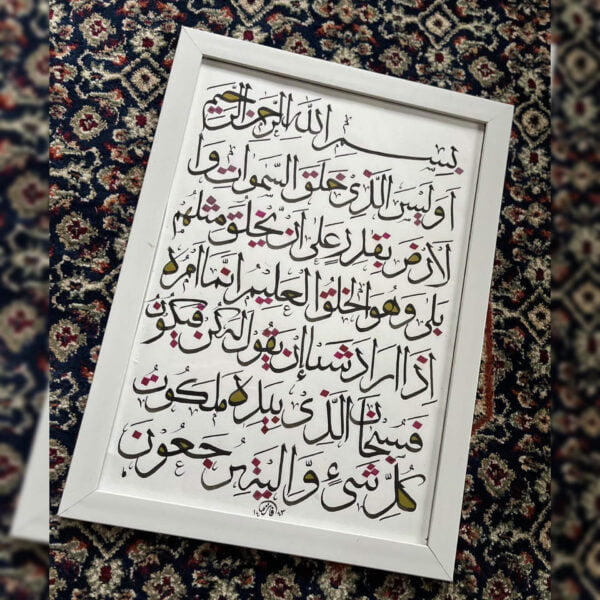 بسم الله الرحمن الرحيم
اوليس الذى خلق السموات وا
لارض بقدر على ان يخلق مثلهم
بلى وهو الخلق العليم انما امره
اذا اراد شيئا ان يقول له كن فيكون
فسبحان الذى بيده ملكوت
كل شىء واليه ترجعون